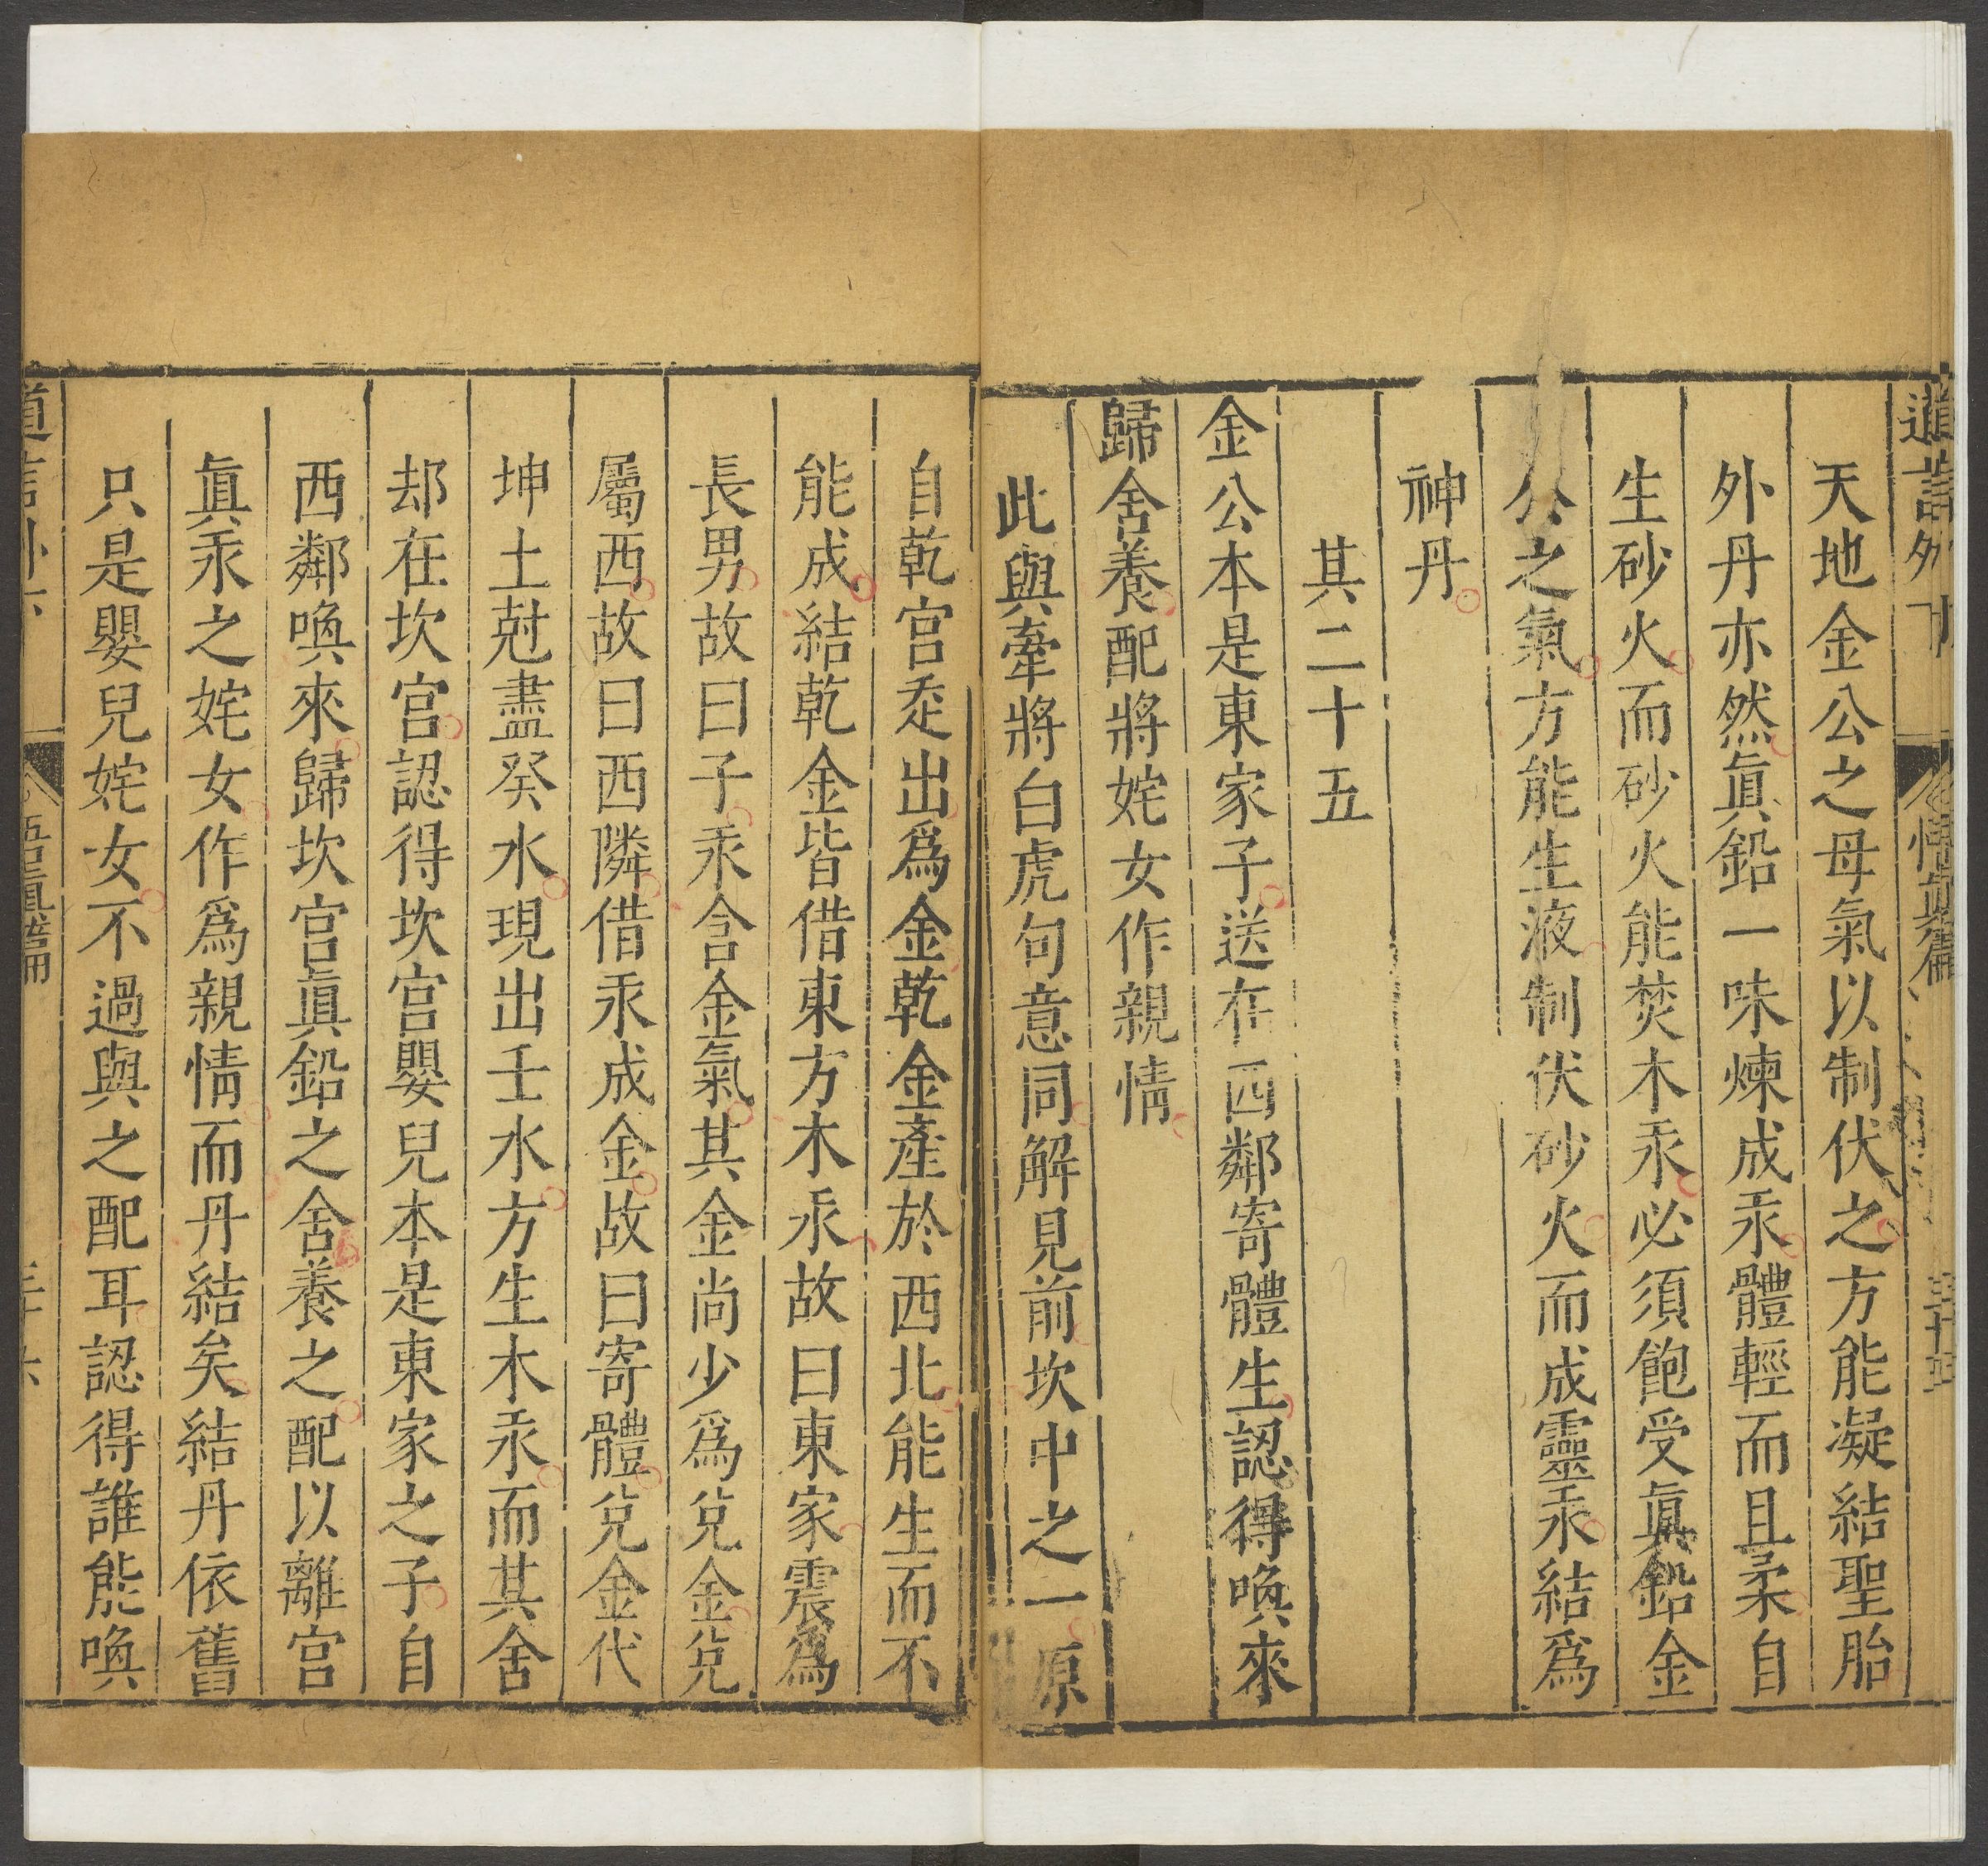 天地金公之母氣以制伏之方能凝結聖胎
外丹亦然眞鉛一味煉成汞體輕而且柔自
生砂火而砂火能焚木汞必須飽受眞鉛金
公之氣方能生液制伏砂火而成靈汞結爲
神丹
其二十五
金公本是東家子送在西鄰寄體生認得喚來
歸舍養配將姹女作親情
此與牽將白虎句意同解見前坎中之一原
自乾宮走出爲金乾金產於西北能生而不
能成結乾金皆借東方木汞故曰東家震爲
長男故曰子汞含金氣其金尚少爲兌金兌
屬西故曰西隣借汞成金故曰寄體兌金代
坤土尅盡癸水現出壬水方生木汞而其舍
却在坎宮認得坎宮嬰兒本是東家之子自
西鄰喚來歸坎宮眞鉛之舍養之配以離宮
眞汞之姹女作爲親情而丹結矣結丹依舊
只是嬰兒姹女不過與之配耳認得誰能喚
道言外
悟眞篇